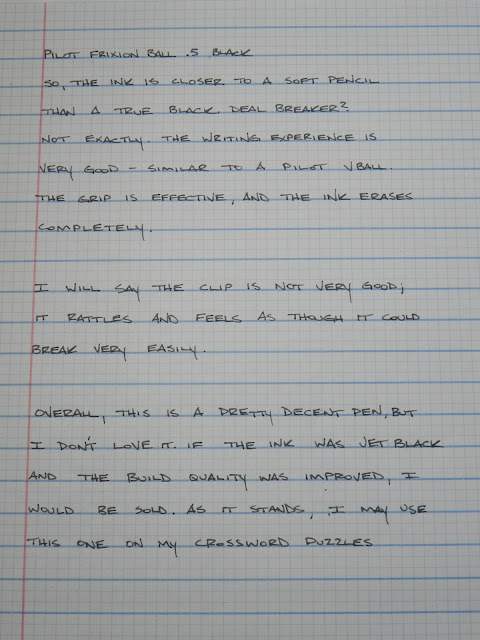 PILOT FRIXION BALL .5 BLACK
SO, THE INK IS CLOSER TO A SOFT PENCIL
THAN A TRUE BLACK. DEAL BREAKER?
NOT EXACTLY. THE WRITING EXPERIENCE IS
VERY GOOD - SIMILAR TO A PILOT VBALL.
THE GRIP IS EFFECTIVE, AND THE INK ERASES
COMPLETELY.
I WILL SAY THE CLIP IS NOT VERY GOOD;
IT RATTLES AND FEELS AS THOUGH IT COULD
BREAK VERY EASILY.
OVERALL, THIS IS A PRETTY DECENT PEN, BUT
I DON'T LOVE IT. IF THE INK WAS JET BLACK
AND THE BUILD QUALITY WAS IMPROVED, I
WOULD BE SOLD. AS IT STANDS, I MAY USE
THIS ONE ON MY CROSSWORD PUZZLES